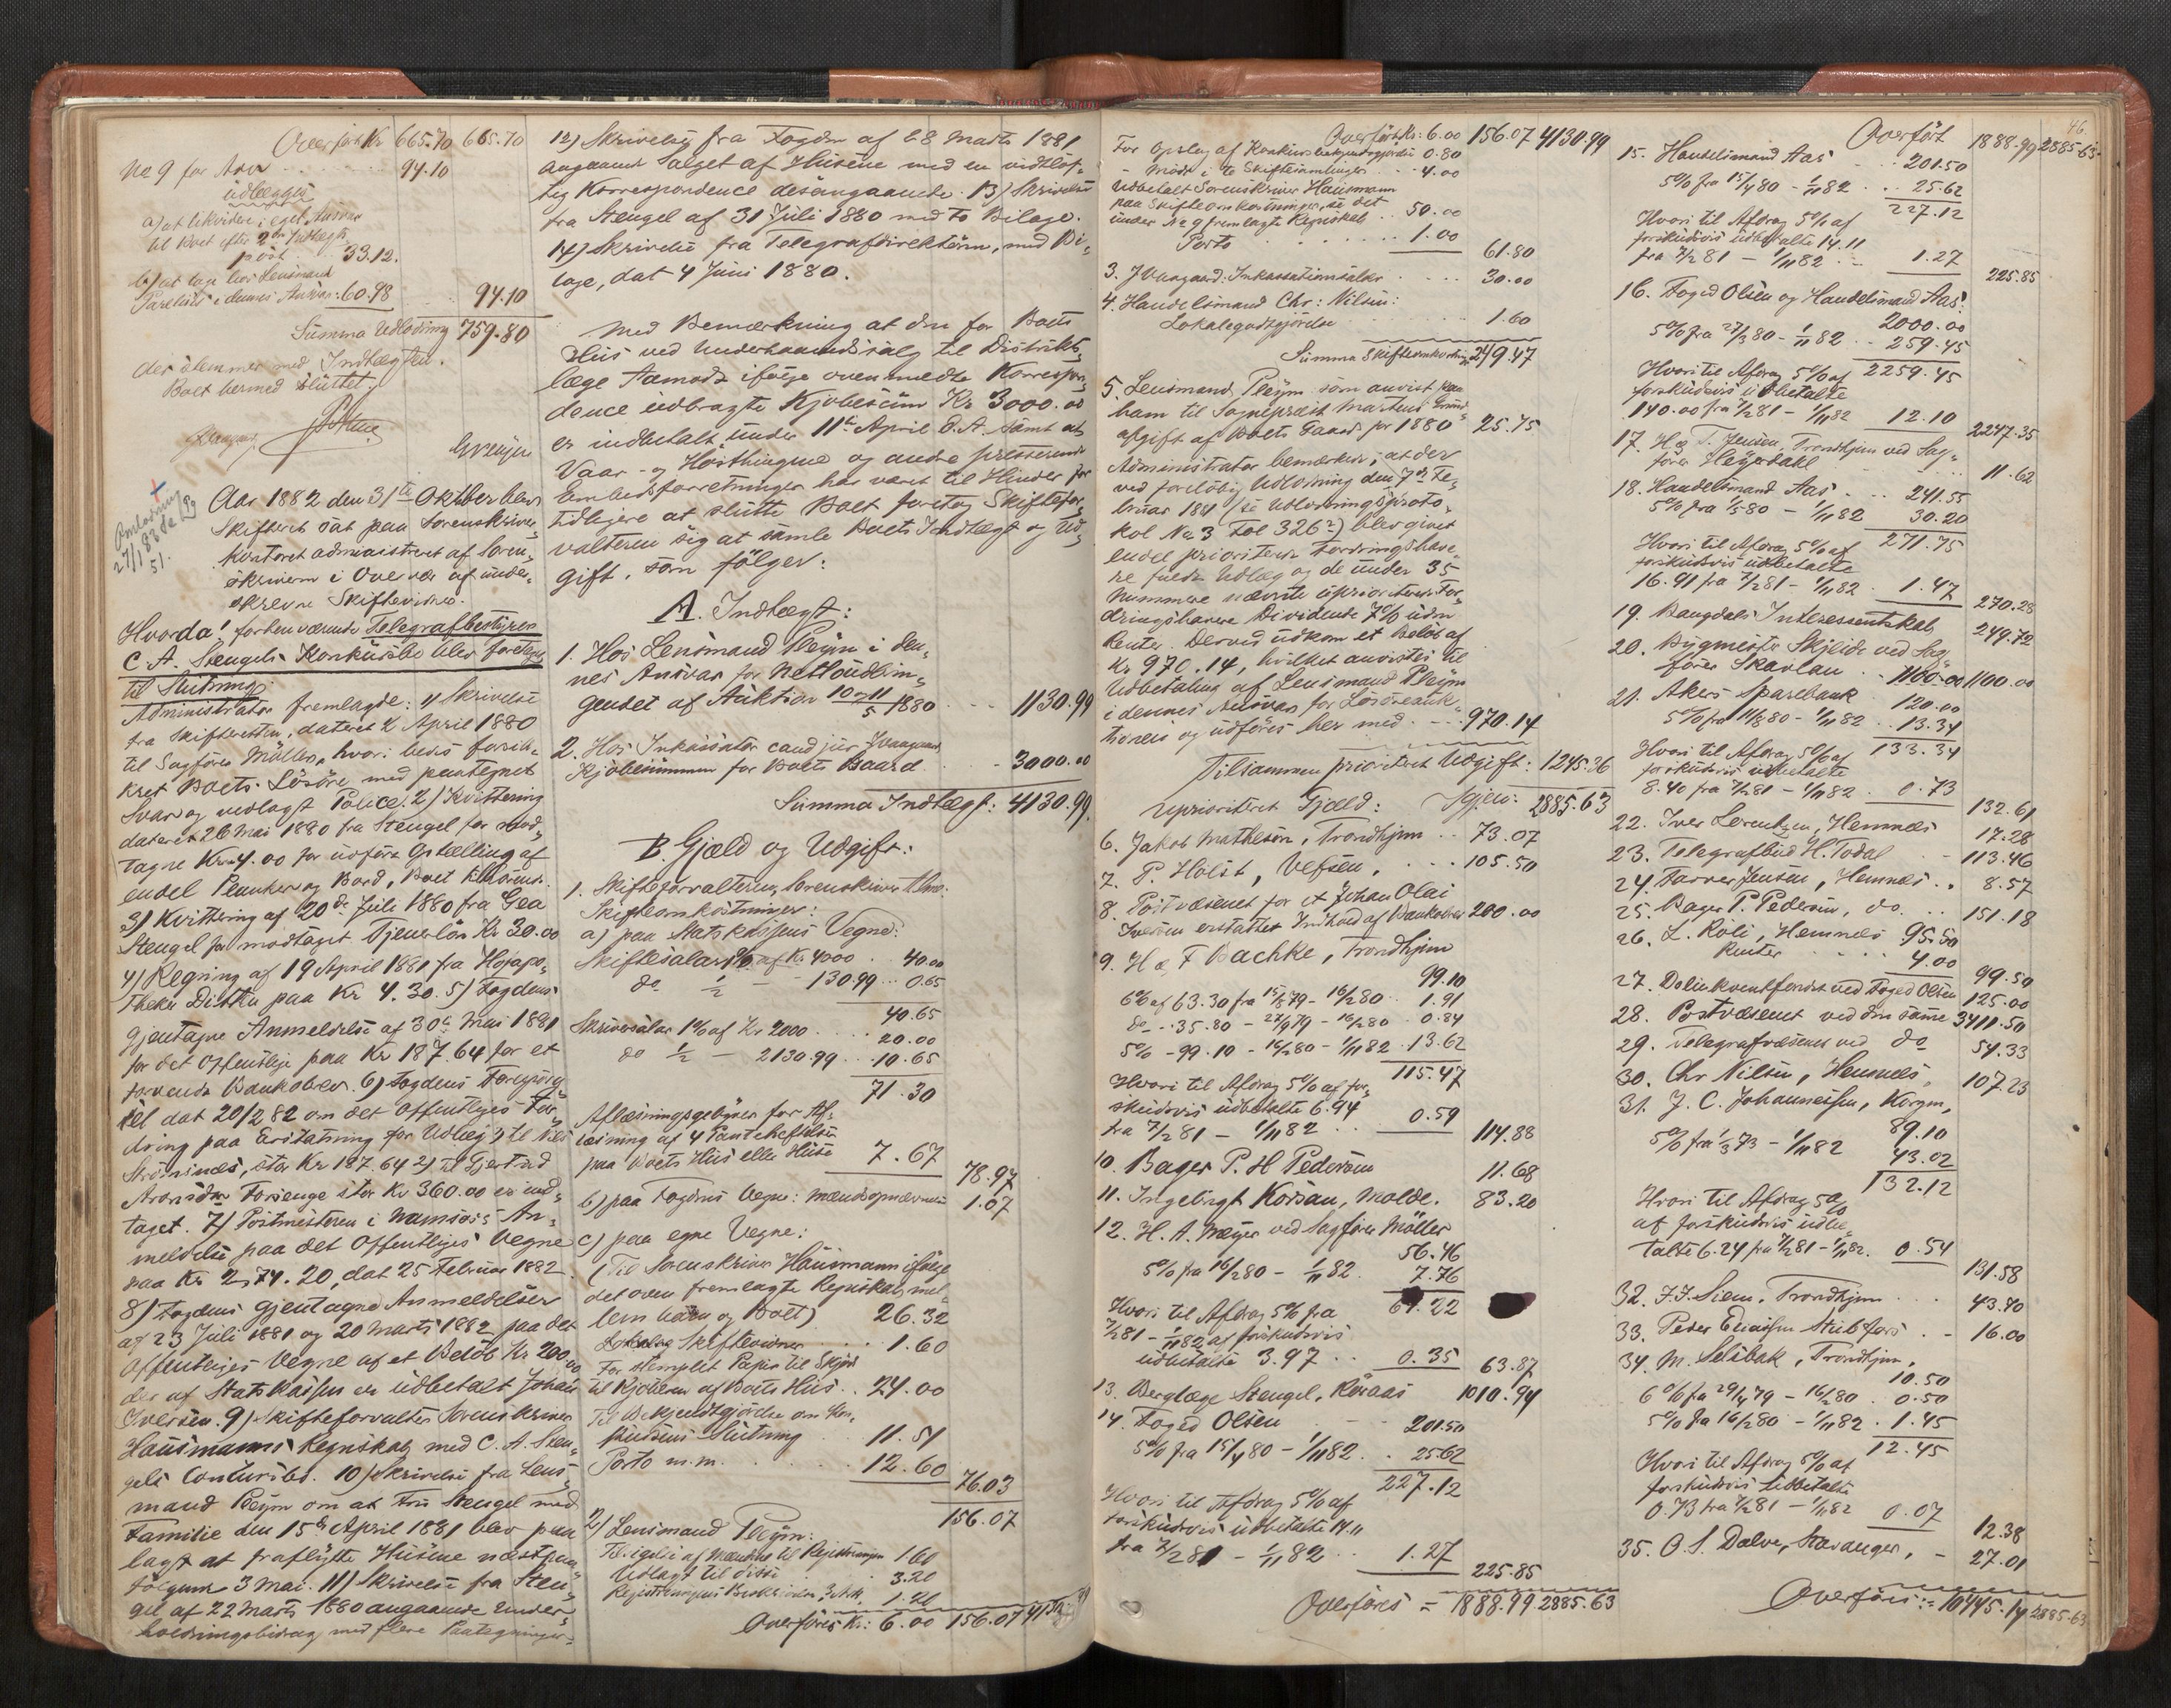 Overført Kr 665.70 665.70
No 9 for Arv 94.10
udlægges
a) at likvidere i eget Ansvar
til Boet efter 2den Indtægts
post 33.12.
b) at tage hos Lensmand
i dennes Ansvar 60.98 94.10
Summa Udlodning 759.80
der stemmer med Indtægten.
Boet hermed sluttet.
Aar 1882 den 31te Oktober blev
Skifteret sat paa Sorenskriver
kontoret administreret af Soren-
skriveren i Overvær af under-
skrevne Skiftevidner.
27/1 83
51.
Hvorda! forhenværende Telegrafbestyrer
C. A. Stengels Konkursbo blev foretaget
til Slutning.
Administrator fremlagde: 1) Skrivelse
fra Skifteretten, dateret 2 April 1880
til Sagfører Møller, hvori bedes forsik-
kret Boets Løsøre, med paategnet
Svar og vedlagt Police. 2) Kvittering
dateret 26 Mai 1880 fra Stengel for mod-
tagne Kr 4.00 for udført Opstilling af
endel Planker og Bord, Boet tilhørende.
3) Kvittering af 20de Juli 1880 fra Gea
Stengel for modtaget Tjenerløn Kr 30.00
4) Regning af 19 April 1881 fra Hofapo-
theker Ditten paa Kr 4.30. 5) Fogdens
gjentagne Anmeldelse af 30te Mai 1881
for det Offentlige paa Kr 187.64 for et
forvendt Bankobrev. 6) Fogdens Forespørg-
sel dat 20/2 82 om det Offentliges For-
dring paa Erstatning for Udlæg 1) til Nils
Strømsnes, stor Kr 187.64 2) til Gjertrud
Aronsdtr Forsenge stor Kr 360.00 er ind-
taget. 7) Postmesteren i Namsos's An-
meldelse paa det Offentliges Vegne
paa Kr 2,74.20, dat 25 Februar 1882.
8) Fogdens gjentagne Anmeldelser
af 23 Juli 1881 og 20 Marts 1882 paa det
Offentliges Vegne af et Beløb Kr 200.00
der af Statskassen er udbetalt Johan
Iversen. 9) Skifteforvalter Sorenskriver
Hausmanns Regnskab med C. A. Sten-
gels Concursbo. 10) Skrivelse fra Lens-
mand Pleym om at Fru Stengel med
Familie den 15de April 1881 blev paa-
lagt at fraflytte Husene næstpaa-
følgende 3 Mai. 11) Skrivelse fra Sten-
gel af 22 Marts 1880 angaaende Under-
holdningsbidrag med flere Paategninger.
12) Skrivelse fra Fogden af 28 Marts 1881
angaaende Salget af Husene med en vidtløf-
tig Korrespondence desangaaende. 13) Skrivelse
fra Stengel af 31 Juli 1880 med to Bilage.
14) Skrivelse fra Telegrafdirektøren, med Bi-
lage, dat 4 Juni 1880.
Med Bemærkning at den for Boets
Hus ved Underhaandssalg til Distrikts-
læge Aamodt ifølge ovenmeldte Korrespon-
dence udbragte Kjøbesum Kr 3000.00
er indbetalt under 11te April d. A. samt at
Vaar- og Høstthingene og andre presserende
Embedsforretninger har været til Hinder for
tidligere at slutte Boet foretog Skiftefor-
valteren sig at samle Boets Indtægt og Ud-
gift, som følger:
A. Indtægt:
1. Hos Lensmand Pleym i den-
nes Ansvar for Nettoudbrin-
gendet af Auktion 10 og 11/5 1880 1130.99
2. Hos Inkassator cand jur J Vaagaard
Kjøbesummen for Boets Gaard 3000.00
Summa Indtægt: 4130.99.
B. Gjæld og Udgift:
1. Skifteforvalteren, Sorenskriver
Skifteomkostninger:
a) paa Statskassens Vegne:
Skiftesalær 1% af Kr 4000 40.00
do ½ — 130.99 0.65
40.65
Skriversalær 1% af Kr 2000 20.00
do ½ — 2130.99 10.65
71.30
Aflæsningsgebyrer for Af-
læsning af 4 Pantehæftelser
paa Boets Hus eller Huse 7.67
78.97
b) paa Fogdens Vegne: Mændsopnævnelse 1.07
c) paa egne Vegne:
(Til Sorenskriver Hausmann ifølge
det oven fremlagte Regnskab mel-
lem ham og Boet) 26.32
Skiftevidner 1.60
For stemplet Papir til Skjøde
til Kjøberen af Boets Hus 24.00
Til Bekjendtgjørelse om Kon-
kursens Slutning 11.51
Porto m.m. 12.60
76.03
156.07
2) Lensmand Pleym:
Tilsigelse af Mændene til Registreringen 1.60
Udlagt til disse 3.20
1.20
Overføres Kr: 6.00 156.07
Overført Kr: 6.00 156.07 4130.99
For Opslag af Konkursbekjendtgjørelse 0.80
— Møde i Skiftesamlinger 4.00
Udbetalt Sorenskriver Hausmann
paa Skifteomkostninger, se det
under No 9 fremlagte Regnskab 50.00
Porto 1.00
61.80
3. J Vaagaard: Inkassationssalær 30.00
4. Handelsmand Chr: Nilsen:
Lokalegodtgjørelse 1.60
Summa Skifteomkostninger 249.47
5. Lensmand Pleym som anvist kan
ham til Sogneprest Martens Grund-
afgift af Boets Gaard for 1880 25.75
Administrator bemærker, at der
ved foreløbig Udlodning den 7de Fe-
bruar 1881 (se Udlodningsproto-
kol No 3 Fol 326) blev givet
endel prioriterte Fordringshave-
re fuldt Udlæg og de under 35
Nummere nævnte uprioriterte For-
dringshavere Dividende 7% uden
Renter. Derved udkom et Beløb af
Kr 970.14, hvilket anvistes til
Udbetaling af Lensmand Pleym
i dennes Ansvar for Løsøreauk-
tionen og udføres her med 970.14
Tilsammen prioriteret Udgift: 1245.36
Uprioriteret Gjæld: Igjen: 2885.63
6. Jakob Matheson, Trondhjem 73.07
7. P. Holst, Vefsen, 105.50
8. Postvæsenet for et Johan Olai
Iversen erstattet Indhold af Bankobrev 200.00
9. H & F Bachke, Trondhjem
99.10
6% af 63.30 fra 15/8 79 - 16/2 80 1.91
do - 35.80 - 27/9 79 - 16/2 80 0.84
5% - 99.10 - 16/2 80 - 1/11 82 13.62
115.47
Hvori til Afdrag 5% af for-
skudsvis udbetalte 6.94
fra 7/2 81 - 1/11 82 0.59
114.88
10. Bager P. H Pedersen 11.68
11. Ingebrigt Korsau, Molde. 83.20
12. H. A. Meyer ved Sagfører Møller
56.46
5% fra 16/2 80 - 1/11 82. 7.76
64.22
Hvori til Afdrag 5% fra
7/2 81 - 1/11 82 af forskudsvis
udbetalte 3.97 0.35 63.87
13. Berglæge Stengel, Røraas 1010.94
14. Foged Olsen 201.50
5% fra 15/4 80 - 1/11 82 25.62
227.12
Hvori til Afdrag 5% af
forskudsvis udbetalte 14.11
fra 7/2 81 - 1/11 82 1.27
225.85
Overføres = 1888.99 2885.63
46.
Overført 1888.99 2885.63
15. Handelsmand Aas 201.50
5% fra 15/4 80 - 1/11 82 25.62
227.12
Hvori til Afdrag 5% af
forskudsvis udbetalte 14.11
fra 7/2 81 - 1/11 82 1.27
225.85
16. Foged Olsen og Handelsmand Aas:
2000.00
5% fra 27/3 80 - 1/11 82 259.45
2259.45
Hvori til Afdrag 5% af
forskudsvis udbetalte
140.00 fra 7/2 81 - 1/11 82 12.10
2247.35
17. H & T. Jensen, Trondhjem ved Sag-
fører Heyerdahl 11.62
18. Handelsmand Aas 241.55
5% fra 1/5 80 - 1/11 82 30.20
271.75
Hvori til Afdrag 5% af
forskudsvis udbetalte
16.91 fra 7/2 81 - 1/11 82 1.47
270.28
19. Bangdals Interessentskab 249.72
20. Bygmester Skjeide ved Sag-
fører Skavlan 1100.00 1100.00
21. Akers Sparebank 120.00
5% fra 11/8 80 - 1/11 82 13.34
133.34
Hvori til Afdrag 5% af
forskudsvis udbetalte
8.40 fra 7/2 81 - 1/11 82 0.73
132.61
22. Iver Lorentzen, Hemnes 17.28
23. Telegrafbud H. Todal 113.46
24. Farver Jensen, Hemnes 8.57
25. Bager P. Pedersen, do. 151.18
26. L. Roli, Hemnes 95.50
Renter 4.00
99.50
27. Delinkventfondet ved Foged Olsen 125.00
28. Postvæsenet ved den samme 3411.50
29. Telegrafvæsenet ved do 54.33
30. Chr Nilsen, Hemnes, 107.23
31. J. C. Johannessen, Korgen,
89.10
5% fra 1/3 73 - 1/11 82 43.02
132.12
Hvori til Afdrag 5%
af forskudsvis udbe-
talte 6.24 fra 7/2 81 - 1/11 82. 0.54
131.58
32. F. F. Siem, Trondhjem 43.40
33. Peder Stubfors 16.00
34. M. Selsbak, Trondhjem,
10.50
6% fra 29/4 79 - 16/2 80 0.50
5% fra 16/2 80 - 1/11 82 1.45
12.45
Hvori til Afdrag 5% af
forskudsvis Udbetalte
0.73 fra 7/2 81 - 1/11 82 0.07
12.38
35. O. S. Dalve, Stavanger, 27.01
Overføres = 10445.14 2885.63